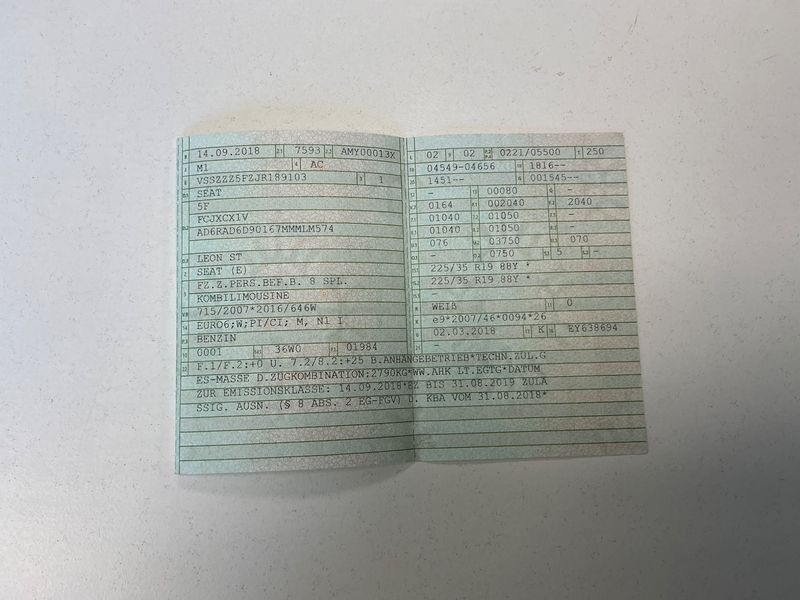 14.09.2018 7593 AMY00013X
M1 AC
VSSZZZ5FZJR189103 1
SEAT
5F
FCJXCX1V
AD6RAD6D90167MMMLM574
LEON ST
SEAT (E)
FZ.Z.PERS.BEF.B. 8 SPL.
KOMBILIMOUSINE
715/2007*2016/646W
EURO6;W;PI/CI; M, N1 I
BENZIN
0001 36W0 01984
02 02 0221/05500 250
04549-04656 1816--
1451-- 001545--
- 00080 -
0164 002040 2040
01040 01050 -
01040 01050 -
076 03750 070
- 0750 5 -
225/35 R19 88Y *
225/35 R19 88Y *
-
WEIß 0
e9*2007/46*0094*26
02.03.2018 K EY638694
-
F.1/F.2:+0 U. 7.2/8.2:+25 B.ANHÄNGEBETRIEB*TECHN.ZUL.G
ES-MASSE D.ZUGKOMBINATION:2790KG*WW.AHK LT.EGTG*DATUM
ZUR EMISSIONSKLASSE: 14.09.2018*BZ BIS 31.08.2019 ZULÄ
SSIG. AUSN. (§ 8 ABS. 2 EG-FGV) D. KBA VOM 31.08.2018*